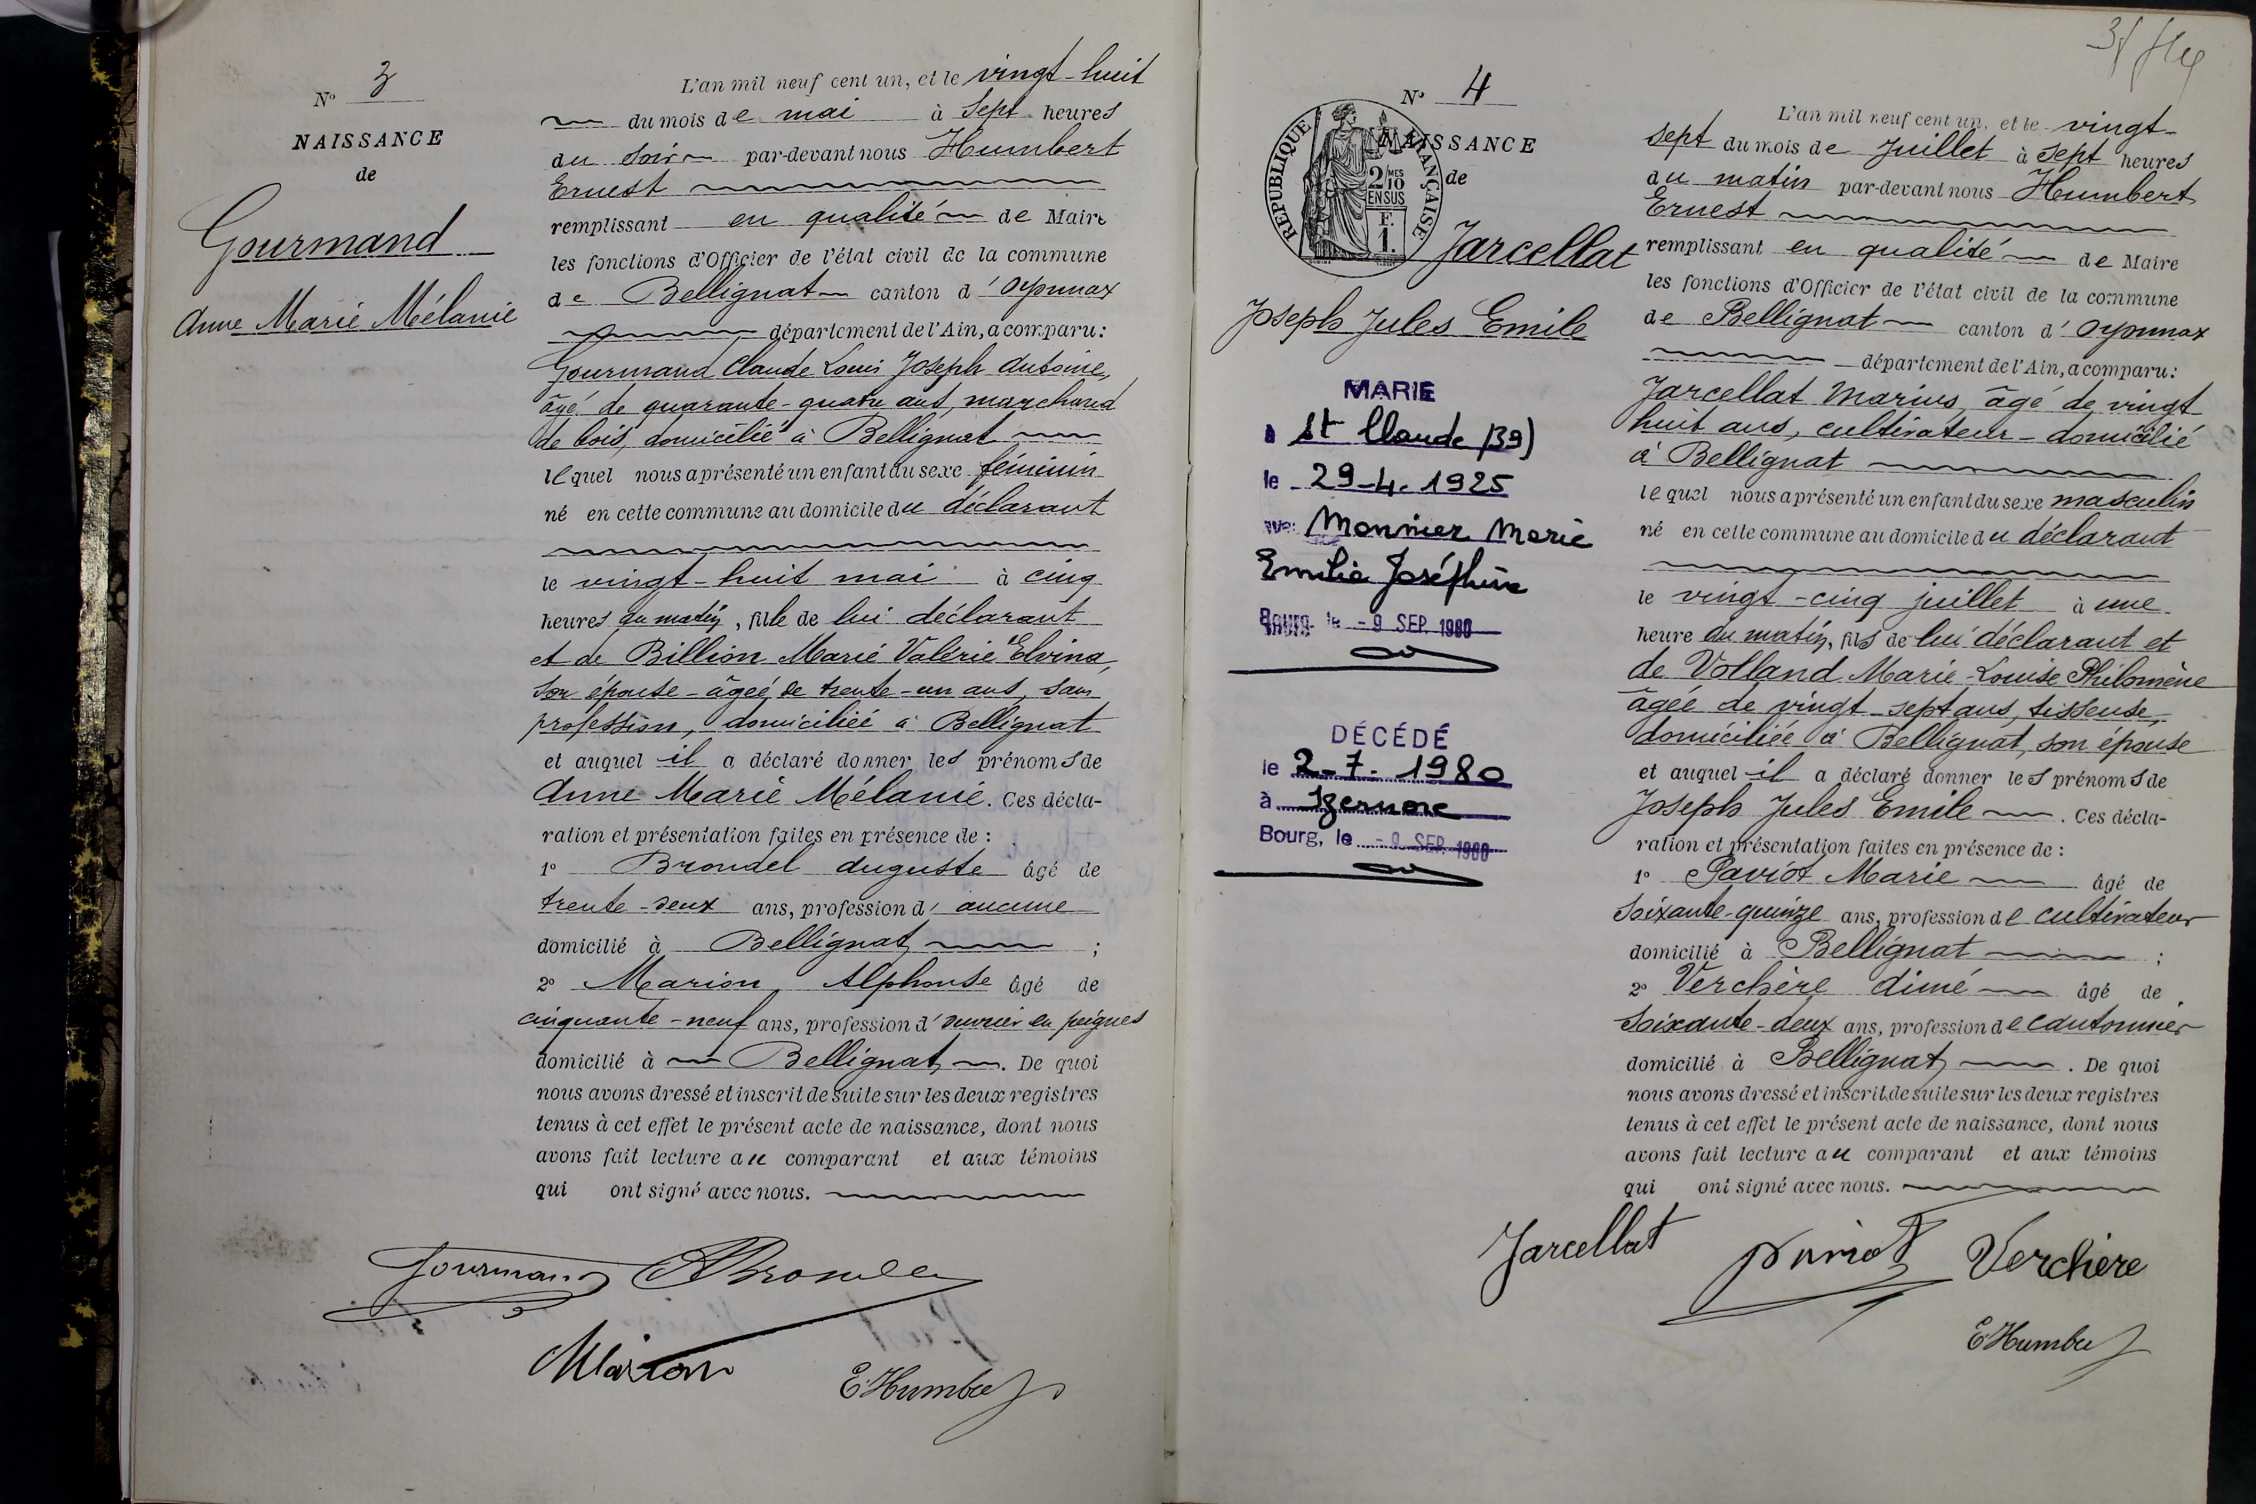 N° 3
NAISSANCE
de
Gourmand
Anne Marie Mélanie
L'an mil neuf cent un, et le vingt-huit
du mois de mai à sept heures
du soir par-devant nous Humbert
Ernest
remplissant en qualité de Maire
les fonctions d'Officier de l'état civil de la commune
de Bellignat canton d'Oyonnax
département de l'Ain, a comparu :
Gourmand Claude Louis Joseph Antoine,
âgé de quarante-quatre ans, marchand
de bois, domicilié à Bellignat
lequel nous a présenté un enfant du sexe féminin
né en cette commune au domicile du déclarant
le vingt-huit mai à cinq
heures du matin, fille de lui déclarant
et de Billion Marie Valérie Elvina,
son épouse - âgée de trente-un ans, sans
profession, domiciliée à Bellignat
et auquel il a déclaré donner les prénoms de
Anne Marie Mélanie. Ces décla-
ration et présentation faites en présence de :
1° Brondel Auguste âgé de
trente-deux ans, profession d'aucune
domicilié à Bellignat ;
2° Marion Alphonse âgé de
cinquante-neuf ans, profession d'ouvrier en peignes
domicilié à Bellignat. De quoi
nous avons dressé et inscrit de suite sur les deux registres
tenus à cet effet le présent acte de naissance, dont nous
avons fait lecture au comparant et aux témoins
qui ont signé avec nous.
Gourmand ABrondel
Marion E. Humbert
N° 4
NAISSANCE
de
REPUBLIQUE FRANÇAISE
2/10 MES
EN SUS
F.
1.
Jarcellat
Joseph Jules Emile
MARIE
à St Claude (39)
le 29-4-1925
avec Monnier Marie
Emilia Joséphine
Bourg, le - 9 SEP. 1980
DÉCÉDÉ
le 2-7-1980
à Izernore
Bourg, le - 9 SEP. 1980
L'an mil neuf cent un, et le vingt-
sept du mois de Juillet à sept heures
du matin par-devant nous Humbert
Ernest
remplissant en qualité de Maire
les fonctions d'Officier de l'état civil de la commune
de Bellignat canton d'Oyonnax
département de l'Ain, a comparu :
Jarcellat Marius, âgé de vingt
huit ans, cultivateur - domicilié
à Bellignat
lequel nous a présenté un enfant du sexe masculin
né en cette commune au domicile du déclarant
le vingt-cinq juillet à une
heure du matin, fils de lui déclarant et
de Volland Marie-Louise Philomène
âgée de vingt-sept ans, tisseuse,
domiciliée à Bellignat, son épouse
et auquel il a déclaré donner les prénoms de
Joseph Jules Emile. Ces décla-
ration et présentation faites en présence de :
1° Paviot Marie âgé de
soixante-quinze ans, profession de cultivateur
domicilié à Bellignat ;
2° Verchère Aimé âgé de
soixante-deux ans, profession de cantonnier
domicilié à Bellignat. De quoi
nous avons dressé et inscrit de suite sur les deux registres
tenus à cet effet le présent acte de naissance, dont nous
avons fait lecture au comparant et aux témoins
qui ont signé avec nous.
Jarcellat Paviot Verchère
E. Humbert